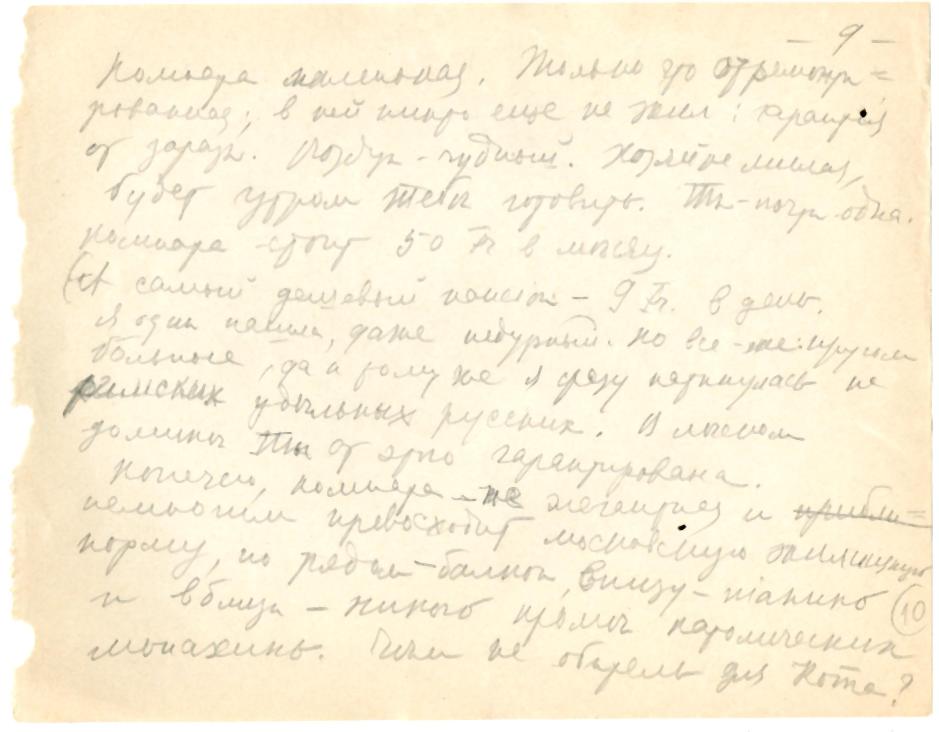 — 9 —
Комната маленькая. Только что отремонти=
рованная; в ней никто еще не жил: гарантия
от заразы. Воздух – чудный. Хозяйка милая,
будет утром Тебе готовить. Ты – почти одна.
Комната стоит 50 Fr в месяц.
(А самый дешевый пансион – 9 Fr. в день.
Я один нашла, даже недурный. Но все-же: кругом
больные, да и тому же я сразу наткнулась на
римских русских. В моем
домике Ты от этого гарантирована.
Конечно, комната – не элегантная и прибли=
немногим превосходит московскую жилищную
норму, но рядом – балкон, внизу – пианино
и вблизи – никого кроме католических
монахинь. Чем не обитель для Кота?
(10)